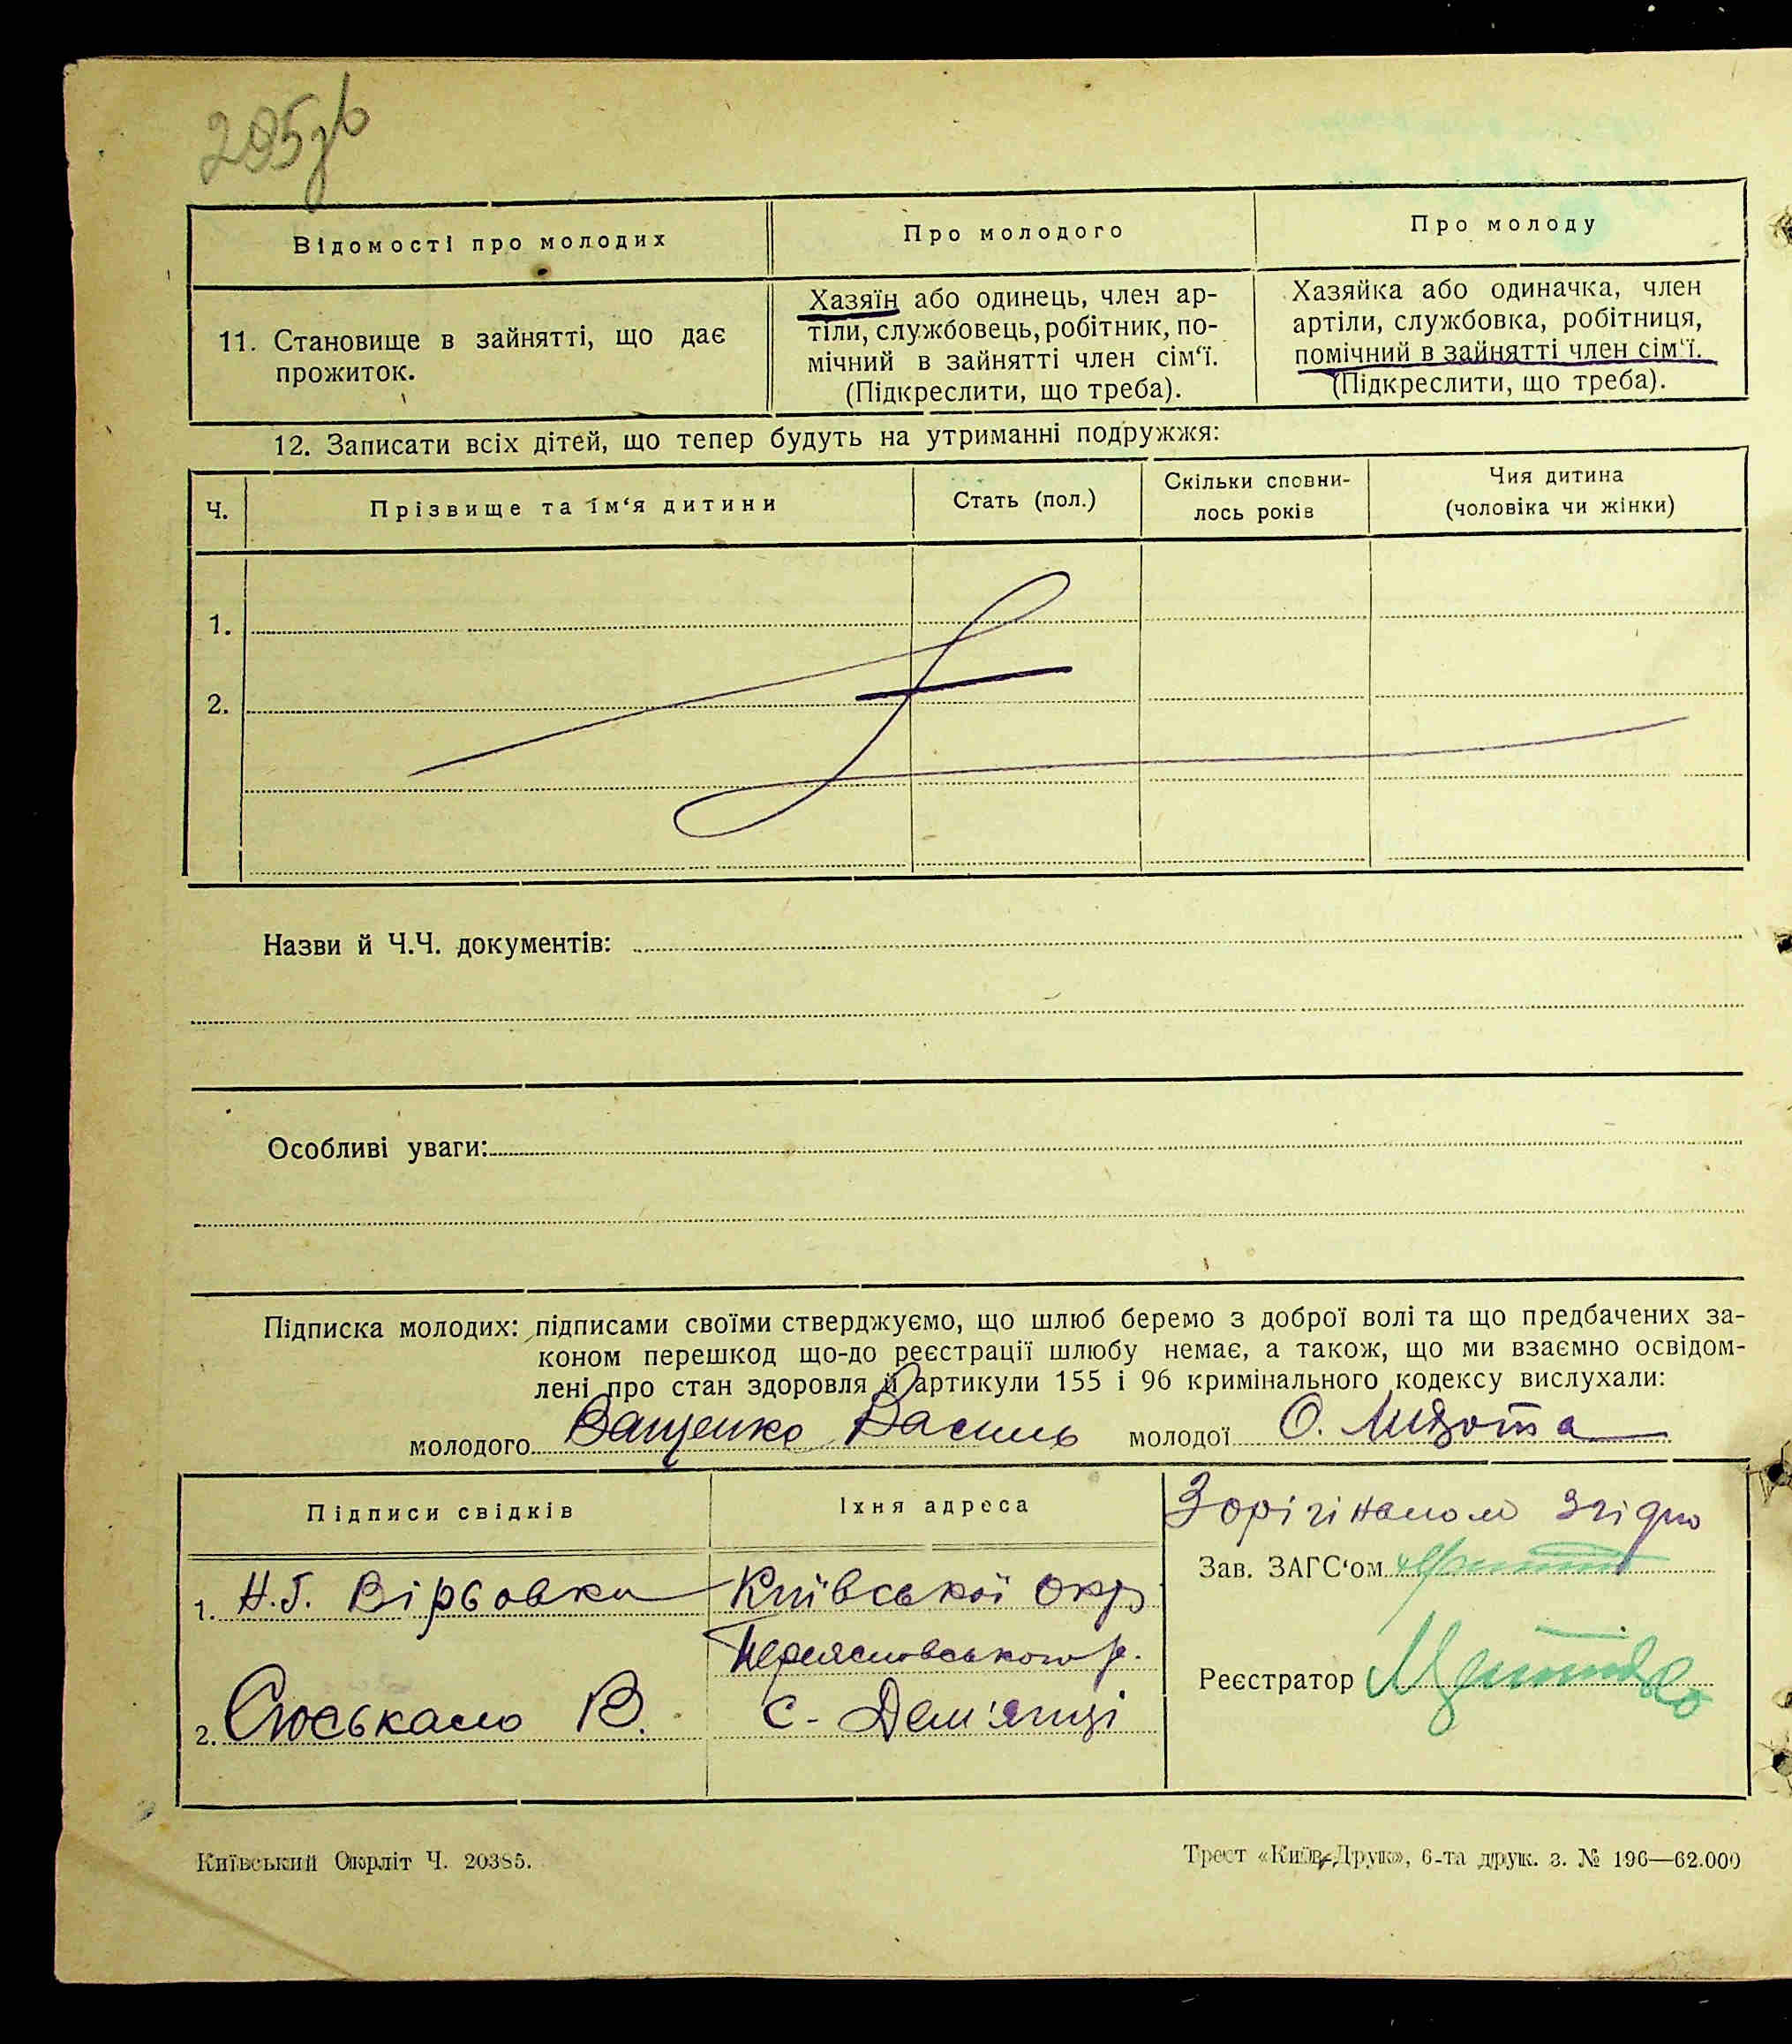 295зв
Відомості про молодих
Про молодого
Про молоду
11. Становище в зайнятті, що дає
прожиток.
Хазяїн або одинець, член ар-
тіли, службовець, робітник, по-
мічний в зайнятті член сім‘ї.
(Підкреслити, що треба).
Хазяйка або одиначка, член
артіли, службовка, робітниця,
помічний в зайнятті член сім‘ї.
(Підкреслити, що треба).
12. Записати всіх дітей, що тепер будуть на утриманні подружжя:
Ч.
Прізвище та ім‘я дитини
Стать (пол.)
Скільки сповни-
лось років
Чия дитина
(чоловіка чи жінки)
1.
2.
Назви й Ч.Ч. документів:
Особливі уваги:
Підписка молодих: підписами своїми стверджуємо, що шлюб беремо з доброї волі та що предбачених за-
коном перешкод що-до реєстрації шлюбу немає, а також, що ми взаємно освідом-
лені про стан здоровля й артикули 155 і 96 кримінального кодексу вислухали:
молодого Ващенко Василь молодої О.
Підписи свідків
Їхня адреса
З орігіналом згідно
Зав. ЗАГС‘ом
1. Н.Г. Вірбовка
Київської окр
Переяславського р.
Реєстратор
2. Сюськало В.
с. Дем'янці
Київський Окрліт Ч. 20385.
Трест «Київ-Друк», 6-та друк. з. № 196—62.000